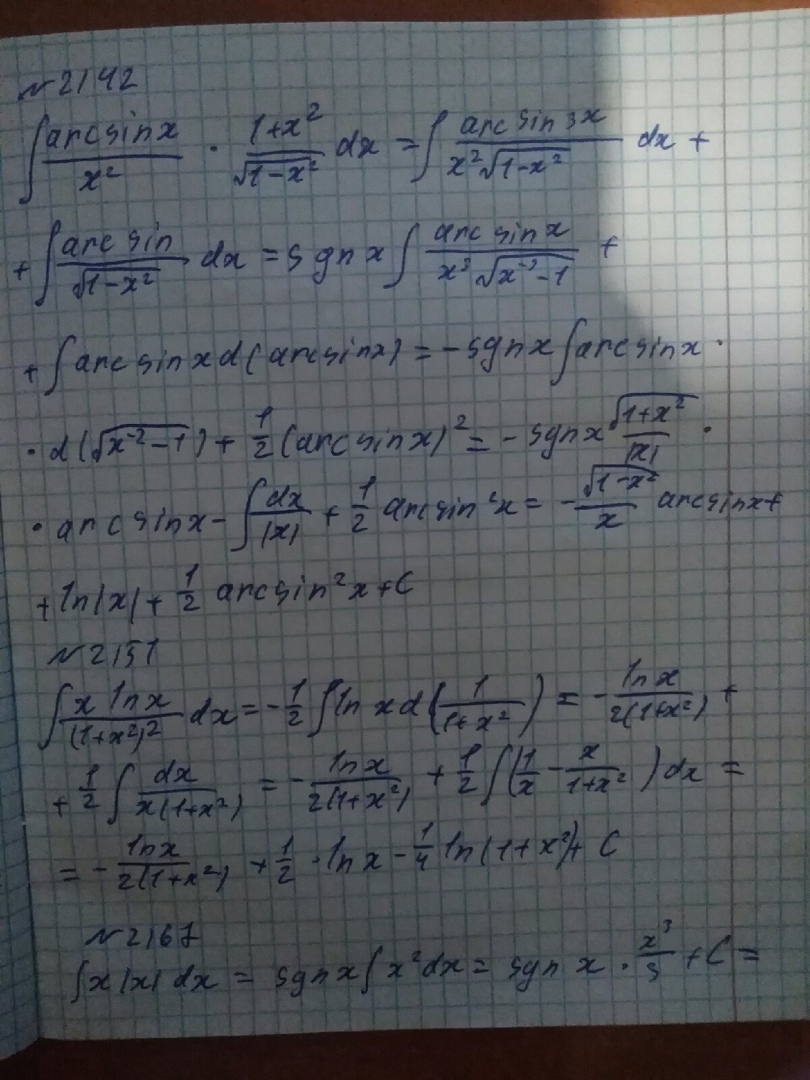 №2142
∫ arcsinx/x² · (1+x²)/√(1-x²) dx = ∫ arcsin3x/(x²√(1-x²)) dx +
+ ∫ arcsin/√(1-x²) dx = sgnx ∫ arcsinx/(x³√(x⁻²-1)) +
+ ∫ arcsinx d(arcsinx) = -sgnx ∫ arcsinx ·
· d(√(x⁻²-1)) + 1/2 (arcsinx)² = - sgnx √(1+x²)/|x| ·
· arcsinx - ∫ dx/|x| + 1/2 arcsin²x = - √(1-x²)/x arcsinx +
+ ln|x| + 1/2 arcsin²x + C
№2151
∫ x lnx/(1+x²)² dx = -1/2 ∫ ln x d(1/(1+x²)) = - lnx/(2(1+x²)) +
+ 1/2 ∫ dx/(x(1+x²)) = - lnx/(2(1+x²)) + 1/2 ∫ (1/x - x/(1+x²)) dx =
= - lnx/(2(1+x²)) + 1/2 · lnx - 1/4 ln(1+x²) + C
№2167
∫ x|x| dx = sgnx ∫ x²dx = sgn x · x³/3 + C =